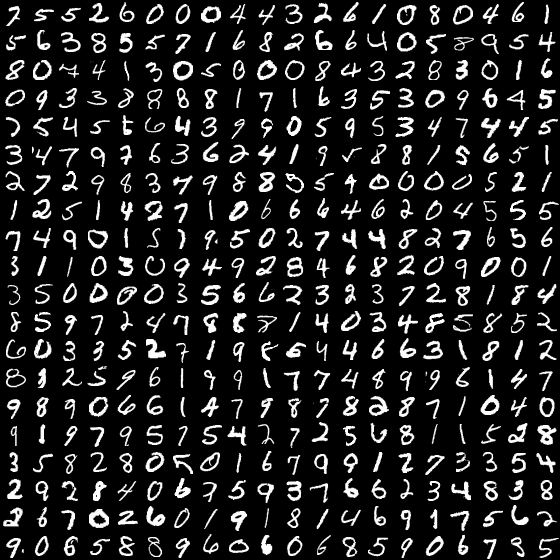 7 5 5 2 6 0 0 0 4 4 3 2 6 1 0 8 0 4 6 1
5 6 3 8 5 5 7 1 6 8 2 6 6 4 0 5 8 9 5 4
8 0 7 4 1 3 0 5 0 0 0 8 4 3 2 8 3 0 1 6
0 9 3 3 8 8 8 8 1 7 1 6 3 5 3 0 9 6 4 5
7 5 4 5 6 6 4 3 9 9 0 5 9 5 3 4 7 4 4 5
3 4 7 9 7 6 3 6 2 4 1 9 5 8 8 1 5 6 5 1
2 7 2 9 8 3 7 9 8 8 5 5 9 0 0 0 0 5 2 1
1 2 5 1 4 2 7 1 0 6 6 6 4 6 2 0 4 5 5 5
7 4 9 0 1 5 7 9 5 0 2 7 4 4 8 2 7 6 5 6
3 1 1 0 3 0 9 4 9 2 8 4 6 8 2 0 9 0 0 1
3 5 0 0 0 0 3 5 6 6 2 3 2 3 7 2 8 1 8 4
8 5 9 7 2 4 7 8 8 8 1 4 0 3 4 8 5 8 5 2
6 0 3 3 5 2 7 1 9 8 6 4 4 6 6 3 1 8 1 2
8 3 2 5 9 6 1 9 9 1 7 7 4 8 9 9 6 1 4 7
9 8 9 0 6 6 1 4 7 9 8 7 8 2 8 7 1 0 4 0
9 1 9 7 9 5 7 5 4 2 7 2 5 6 8 1 1 5 2 8
3 5 8 2 8 0 5 0 1 6 7 9 9 1 2 7 3 3 5 4
2 9 2 8 4 0 6 7 5 9 3 7 6 6 2 3 4 8 3 8
2 6 7 0 2 6 0 1 9 1 8 1 4 6 9 1 7 5 6 2
9 0 6 5 8 8 9 6 0 6 0 6 8 5 9 0 6 7 3 5